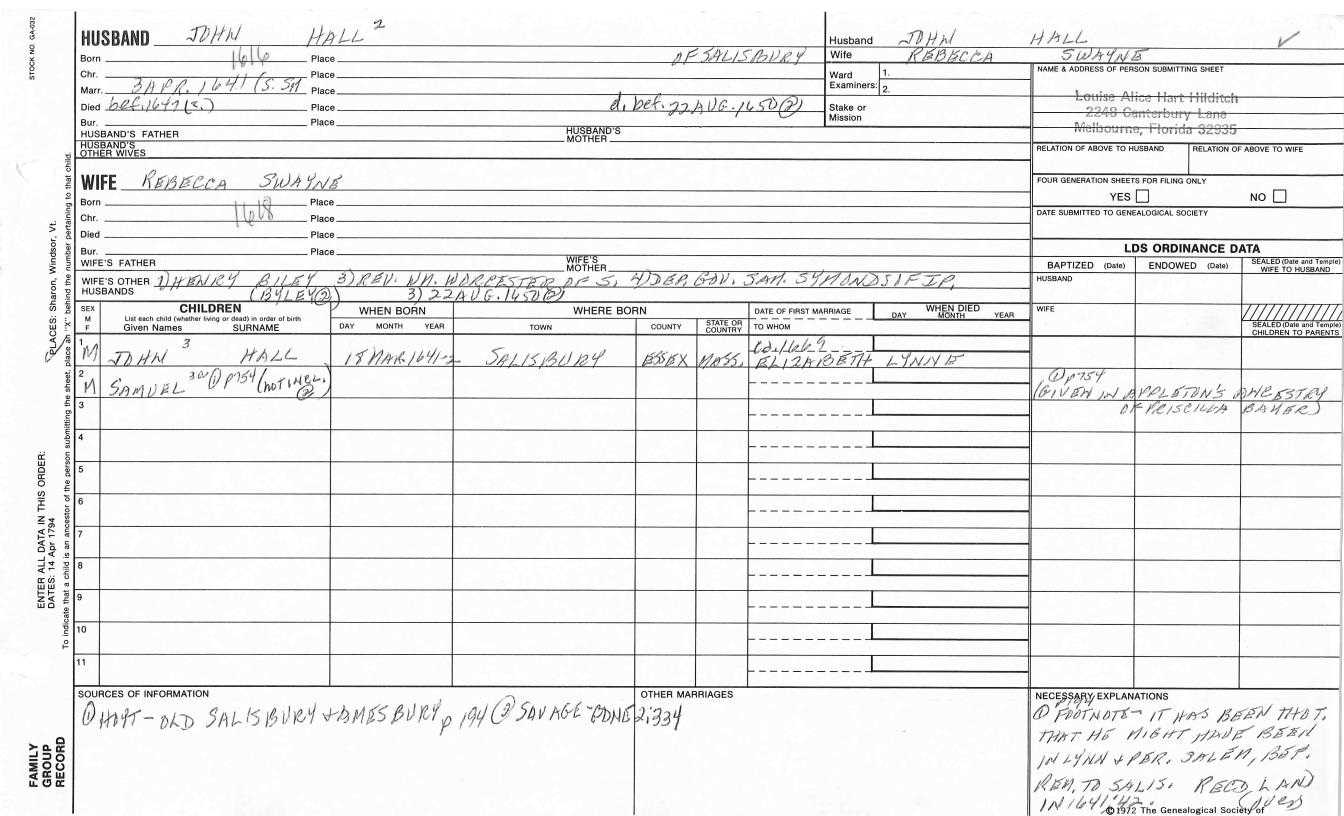 STOCK NO. GA-032
HUSBAND JOHN HALL 2
Born 1616 Place OF SALISBURY
Chr. Place
Marr. 3 APR. 1641 (S. Place
Died bef. 1647 (S.) Place d. bef. 22 AUG. 1650 ②
Bur. Place
HUSBAND'S FATHER HUSBAND'S MOTHER
HUSBAND'S OTHER WIVES
Husband JOHN HALL ✓
Wife REBECCA SWAYNE
Ward Examiners: 1.
2.
Stake or Mission
NAME & ADDRESS OF PERSON SUBMITTING SHEET
Louise Alice Hart Hilditch
2248 Canterbury Lane
Melbourne, Florida 32935
RELATION OF ABOVE TO HUSBAND RELATION OF ABOVE TO WIFE
FOUR GENERATION SHEETS FOR FILING ONLY
YES NO
DATE SUBMITTED TO GENEALOGICAL SOCIETY
WIFE REBECCA SWAYNE
Born Place
Chr. 1618 Place
Died Place
Bur. Place
WIFE'S FATHER WIFE'S MOTHER
WIFE'S OTHER HUSBANDS 1) HENRY BILEY 3) REV. WM. WORCESTER OF S. 4) DEP. GOV. SAM. SYMONDS
(BYLEY ②) 3) 22 AUG. 1650 ②
LDS ORDINANCE DATA
BAPTIZED (Date) ENDOWED (Date) SEALED (Date and Temple) WIFE TO HUSBAND
HUSBAND
WIFE
SEALED (Date and Temple) CHILDREN TO PARENTS
SEX M F
CHILDREN
List each child (whether living or dead) in order of birth
Given Names SURNAME
WHEN BORN
DAY MONTH YEAR
WHERE BORN
TOWN COUNTY STATE OR COUNTRY
DATE OF FIRST MARRIAGE
TO WHOM
WHEN DIED
DAY MONTH YEAR
1 M JOHN 3 HALL 18 MAR. 1641-2 SALISBURY ESSEX MASS. ELIZABETH LYNNE
2 M SAMUEL ① p754 (NOT INCL. ②) ① p754
(GIVEN IN APPLETON'S ANCESTRY
OF PRISCILLA BAKER)
3
4
5
6
7
8
9
10
11
SOURCES OF INFORMATION
① HOYT - OLD SALISBURY & AMESBURY p 194 ② SAVAGE 2:334
OTHER MARRIAGES
NECESSARY EXPLANATIONS
① FOOTNOTE - IT HAS BEEN THOT.
THAT HE MIGHT HAVE BEEN
IN LYNN & PER. SALEM, BEF.
REM. TO SALIS. REC'D LAND
IN 1641-42. (over)
©1972 The Genealogical Society of
PLACES: Sharon, Windsor, Vt.
ENTER ALL DATA IN THIS ORDER:
DATES: 14 Apr 1794
To indicate that a child is an ancestor of the person submitting the sheet, place an "X" behind the number pertaining to that child.
FAMILY GROUP RECORD